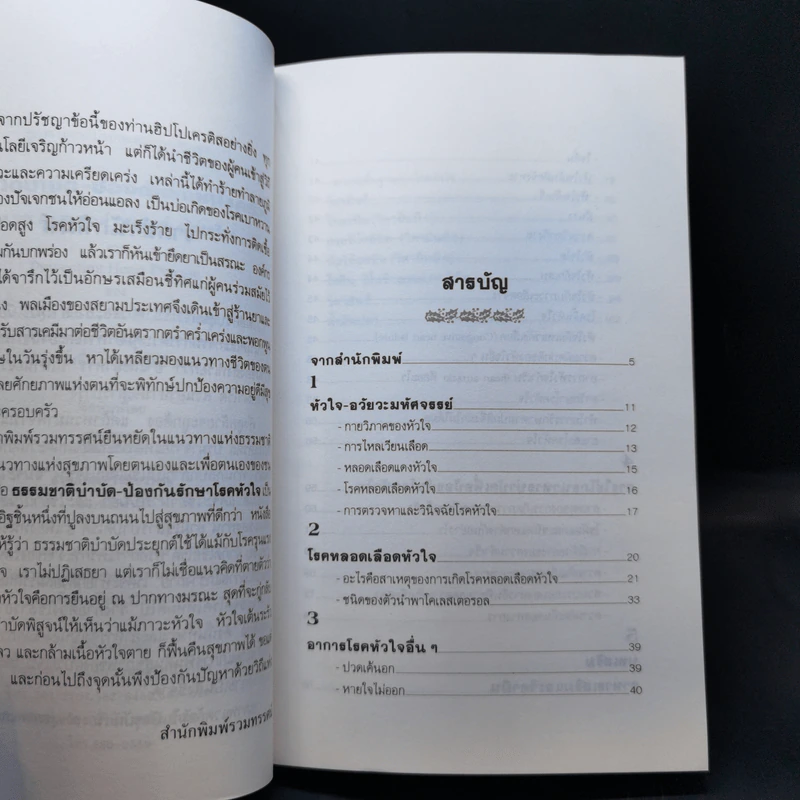 จากปรัชญาข้อนี้ของท่านฮิปโปเครติสอย่างยิ่ง ทุก
นโลยีเจริญก้าวหน้า แต่ก็ได้นำชีวิตของผู้คนเข้าสู่
วะและความเครียดเคร่ง เหล่านี้ได้ทำร้ายทำลาย
องปัจเจกชนให้อ่อนแอลง เป็นบ่อเกิดของโรคเบาหวาน
อดสูง โรคหัวใจ มะเร็งร้าย ไปกระทั่งการติดเชื้อ
มกันบกพร่อง แล้วเราก็หันเข้ายึดยาเป็นสรณะ องค์กร
ได้จารึกไว้เป็นอักษรเสมือนชี้ทิศแก่ผู้คนร่วมสมัยไว้
ง พลเมืองของสยามประเทศจึงเดินเข้าสู่ร้านยาและ
รับสารเคมีมาต่อชีวิตอันตรากตรำคร่ำเคร่งและพอกพูน
ษในวันรุ่งขึ้น หาได้เหลียวมองแนวทางชีวิตของตน
ลยศักยภาพแห่งตนที่จะพิทักษ์ปกป้องความอยู่ดีมีสุข
ครอบครัว
กพิมพ์รวมทรรศน์ยืนหยัดในแนวทางแห่งธรรมชาติ
นวทางแห่งสุขภาพโดยตนเองและเพื่อตนเองของ
อ ธรรมชาติบำบัด-ป้องกันรักษาโรคหัวใจ เป็น
อิฐชิ้นหนึ่งที่ปูลงบนถนนไปสู่สุขภาพที่ดีกว่า หนังสือ
ห้รู้ว่า ธรรมชาติบำบัดประยุกต์ใช้ได้แม้กับโรครุนแรง
จ เราไม่ปฏิเสธยา แต่เราก็ไม่เชื่อแนวคิดที่ตายตัวว่า
หัวใจคือการยืนอยู่ ณ ปากทางมรณะ สุดที่จะกู่กลับ
าบัดพิสูจน์ให้เห็นว่าแม้ภาวะหัวใจ หัวใจเต้นระรัว
ลว และกล้ามเนื้อหัวใจตาย ก็ฟื้นคืนสุขภาพได้
และก่อนไปถึงจุดนั้นพึงป้องกันปัญหาด้วยวิถีแห่ง
สำนักพิมพ์รวมทรรศน์
สารบัญ
จากสำนักพิมพ์ 5
1
หัวใจ-อวัยวะมหัศจรรย์ 11
- กายวิภาคของหัวใจ 12
- การไหลเวียนเลือด 13
- หลอดเลือดแดงหัวใจ 15
- โรคหลอดเลือดหัวใจ 16
- การตรวจหาและวินิจฉัยโรคหัวใจ 17
2
โรคหลอดเลือดหัวใจ 20
- อะไรคือสาเหตุของการเกิดโรคหลอดเลือดหัวใจ 21
- ชนิดของตัวนำพาโคเลสเตอรอล 33
3
อาการโรคหัวใจอื่น ๆ 39
- ปวดเค้นอก 39
- หายใจไม่ออก 40